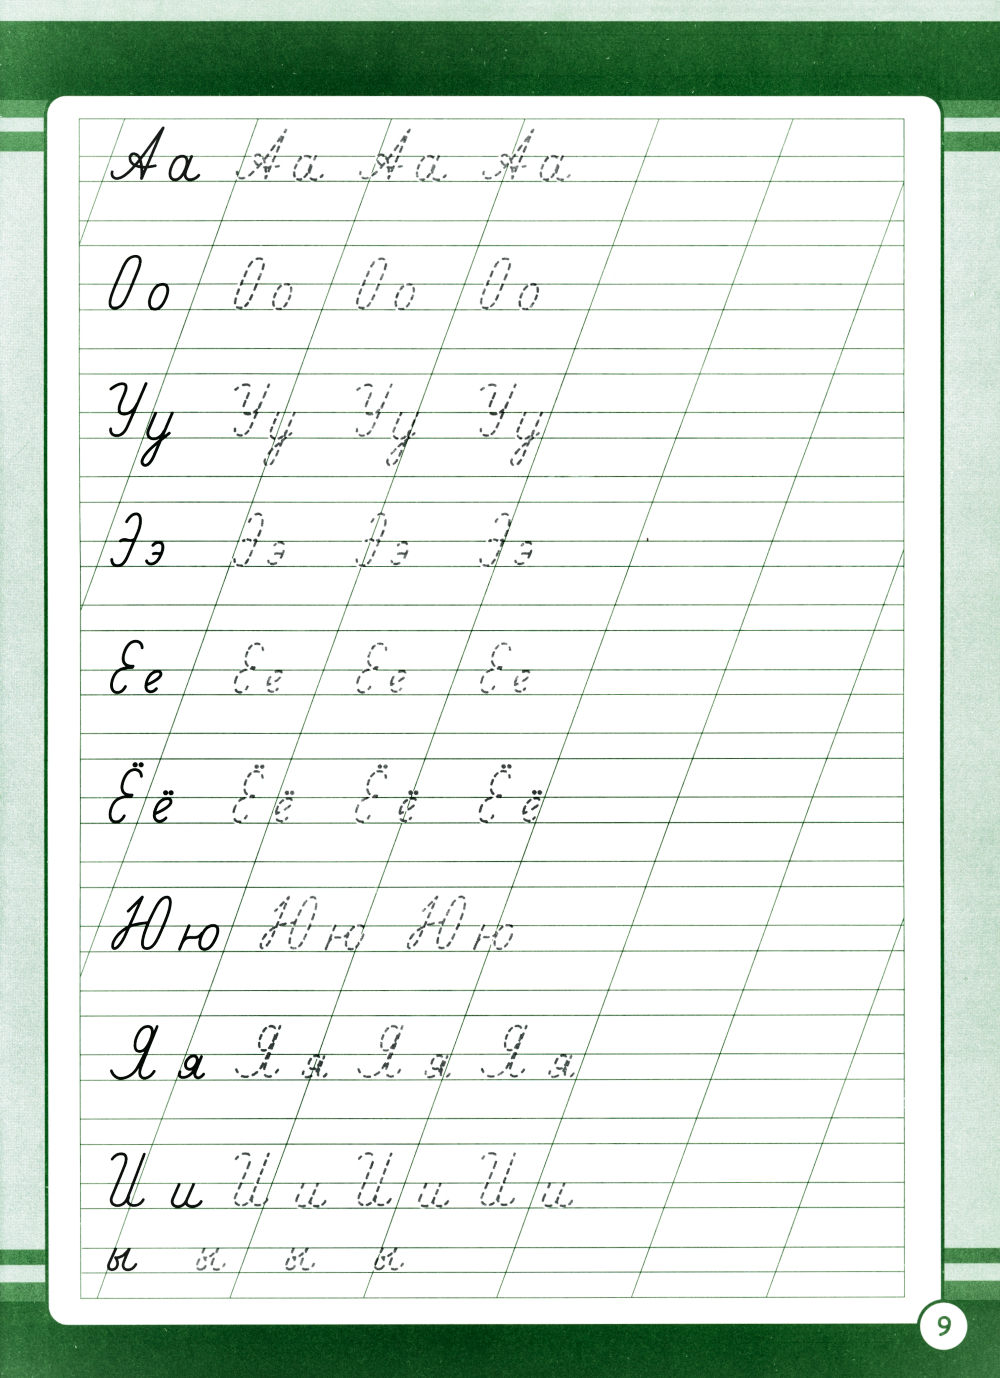 Аа Аа Аа Аа
Оо Оо Оо Оо
Уу Уу Уу Уу
Ээ Ээ Ээ Ээ
Ее Ее Ее Ее
Ёё Ёё Ёё Ёё
Юю Юю Юю
Яя Яя Яя Яя
Ии Ии Ии Ии
ы ы ы ы
9